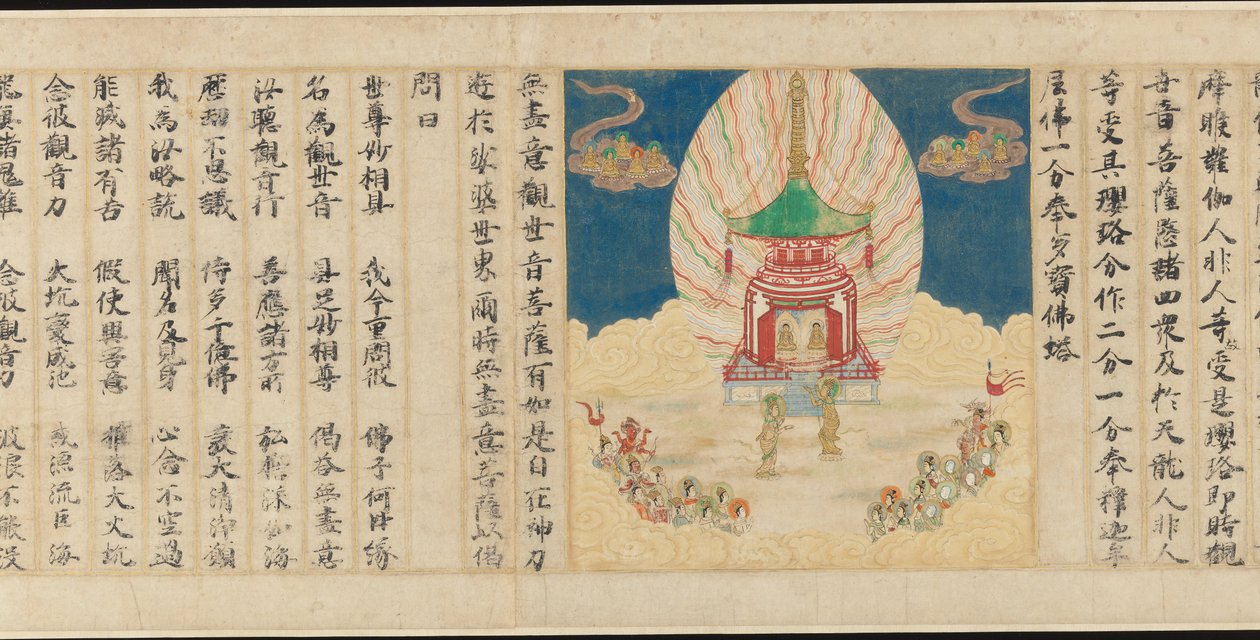 摩睺羅伽人非人等故受是瓔珞即時觀
世音菩薩愍諸四衆及於天龍人非人
等受其瓔珞分作二分一分奉釋迦牟
尼佛一分奉多寶佛塔
無盡意觀世音菩薩有如是自在神力
遊於娑婆世界爾時無盡意菩薩以偈
問曰
世尊妙相具　我今重問彼　佛子何因緣
名為觀世音　具足妙相尊　偈答無盡意
汝聽觀音行　善應諸方所　弘誓深如海
歷劫不思議　侍多千億佛　發大清淨願
我為汝略說　聞名及見身　心念不空過
能滅諸有苦　假使興害意　推落大火坑
念彼觀音力　火坑變成池　或漂流巨海
龍魚諸鬼難　念彼觀音力　波浪不能沒